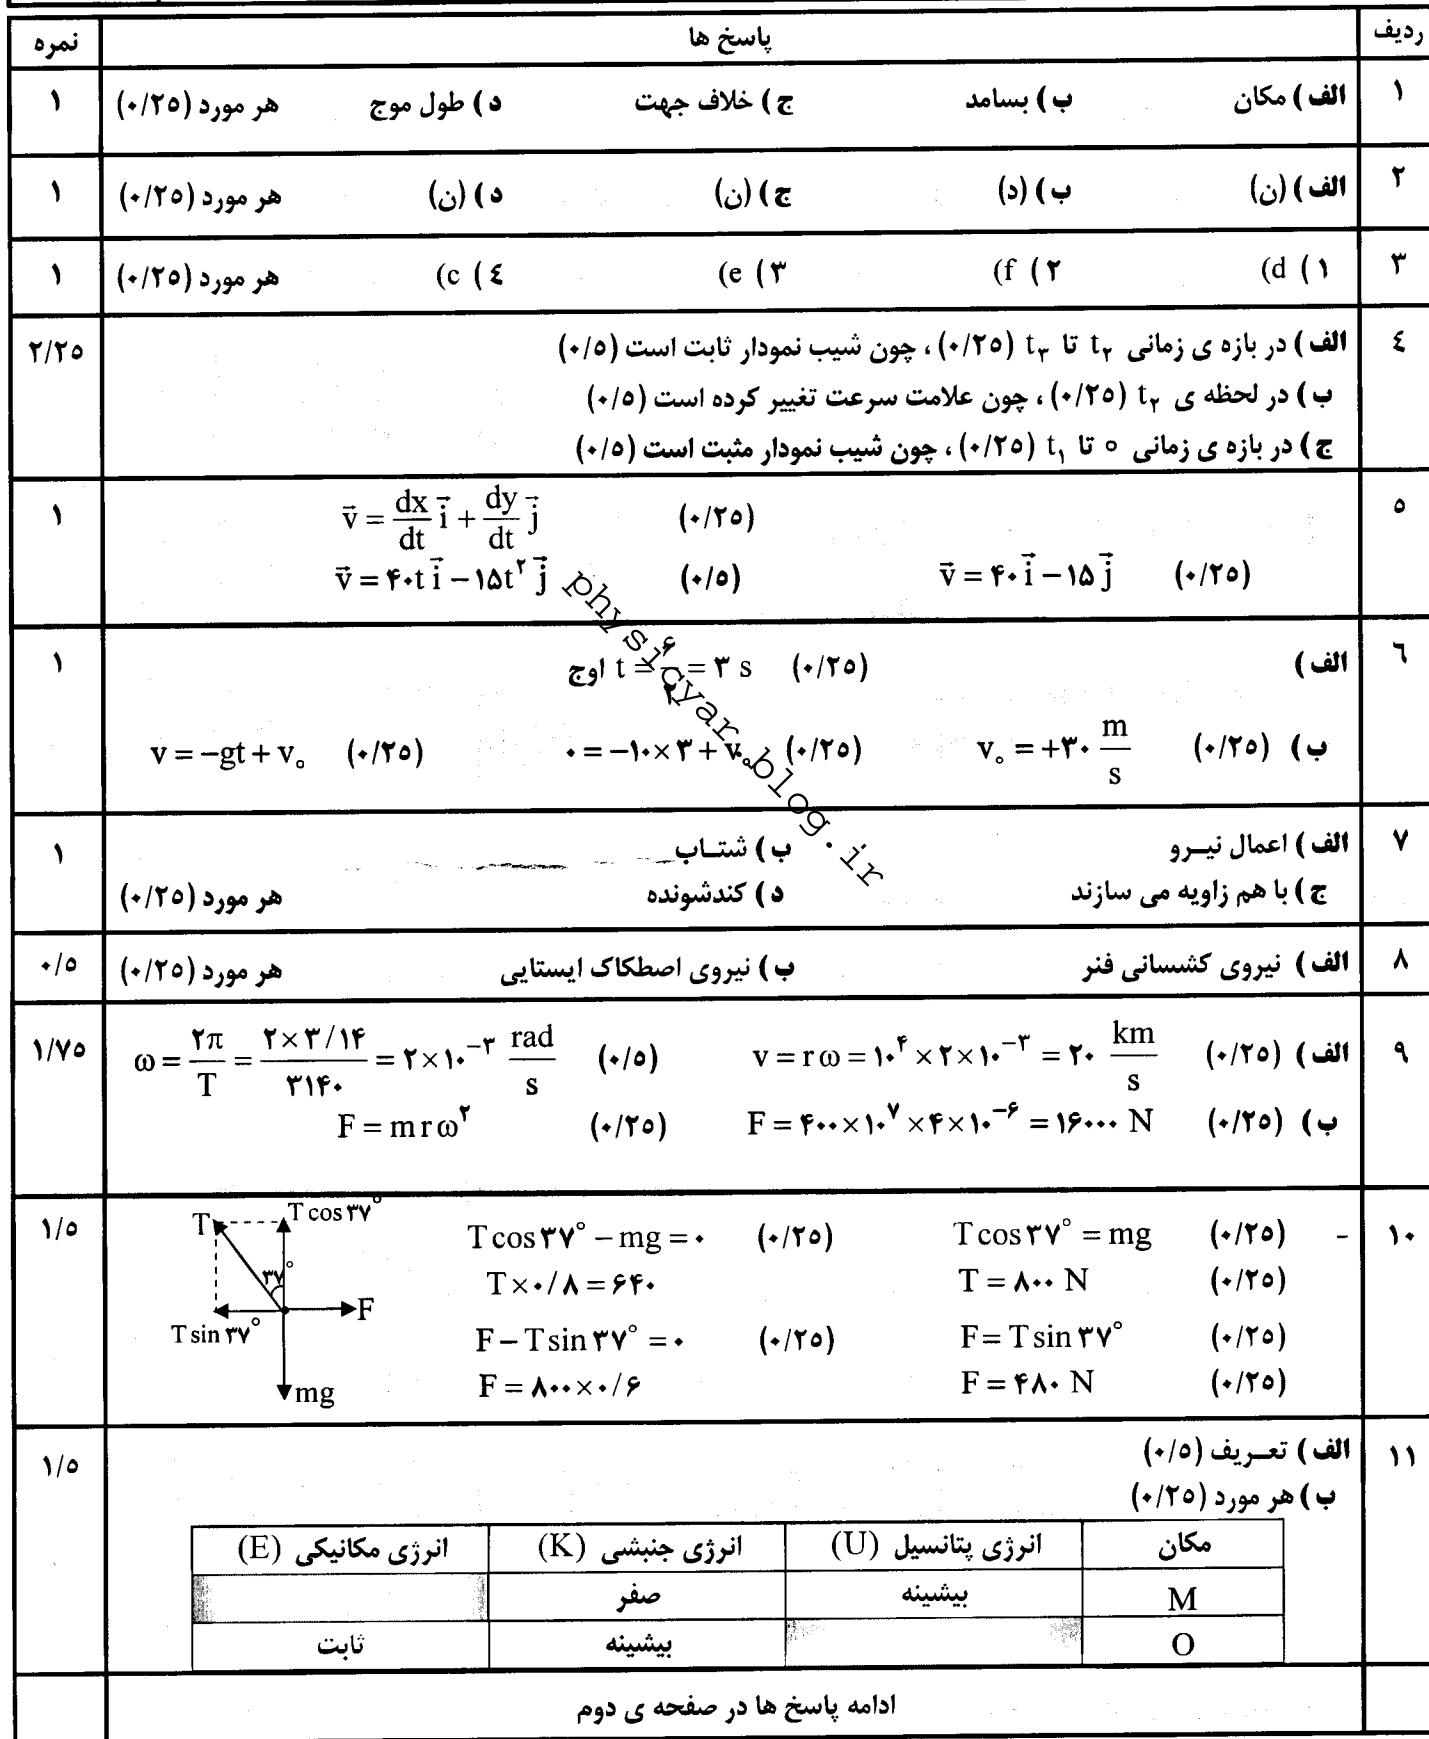 ردیف پاسخ ها نمره
۱ الف ) مکان ب ) بسامد ج ) خلاف جهت د ) طول موج هر مورد (۰/۲۵) ۱
۲ الف ) (ن) ب ) (د) ج ) (ن) د ) (ن) هر مورد (۰/۲۵) ۱
۳ ۱ ) d) ۲ ) f) ۳ ) e) ٤ ) c) هر مورد (۰/۲۵) ۱
٤ الف ) در بازه ی زمانی t₂ تا t₃ (۰/۲۵) ، چون شیب نمودار ثابت است (۰/۵) ۲/۲۵
ب ) در لحظه ی t₂ (۰/۲۵) ، چون علامت سرعت تغییر کرده است (۰/۵)
ج ) در بازه ی زمانی ۰ تا t₁ (۰/۲۵) ، چون شیب نمودار مثبت است (۰/۵)
۵ v⃗ = dx/dt i⃗ + dy/dt j⃗ (۰/۲۵) ۱
v⃗ = ۴۰t i⃗ − ۱۵t² j⃗ (۰/۵) v⃗ = ۴۰ i⃗ − ۱۵ j⃗ (۰/۲۵)
٦ الف ) t = ۶/۲ = ۳ s اوج (۰/۲۵) ۱
ب ) v = −gt + v₀ (۰/۲۵) ۰ = −۱۰×۳ + v₀ (۰/۲۵) v₀ = +۳۰ m/s (۰/۲۵)
۷ الف ) اعمال نیـرو ب ) شتـاب ۱
ج ) با هم زاویه می سازند د ) کندشونده هر مورد (۰/۲۵)
۸ الف ) نیروی کشسانی فنر ب ) نیروی اصطکاک ایستایی هر مورد (۰/۲۵) ۰/۵
۹ الف ) ω = ۲π/T = ۲×۳/۱۴ / ۳۱۴۰ = ۲×۱۰⁻³ rad/s (۰/۵) v = r ω = ۱۰⁴ × ۲×۱۰⁻³ = ۲۰ km/s (۰/۲۵) ۱/۷۵
ب ) F = m r ω² (۰/۲۵) F = ۴۰۰×۱۰⁷ × ۴×۱۰⁻⁶ = ۱۶۰۰۰ N (۰/۲۵)
۱۰ - T cos ۳۷° − mg = ۰ (۰/۲۵) T cos ۳۷° = mg (۰/۲۵) ۱/۵
T × ۰/۸ = ۶۴۰ T = ۸۰۰ N (۰/۲۵)
F − T sin ۳۷° = ۰ (۰/۲۵) F = T sin ۳۷° (۰/۲۵)
F = ۸۰۰×۰/۶ F = ۴۸۰ N (۰/۲۵)
T
T cos ۳۷°
۳۷°
F
T sin ۳۷°
mg
۱۱ الف ) تعـریف (۰/۵) ۱/۵
ب ) هر مورد (۰/۲۵)
مکان انرژی پتانسیل (U) انرژی جنبشی (K) انرژی مکانیکی (E)
M بیشینه صفر
O بیشینه ثابت
ادامه پاسخ ها در صفحه ی دوم
physicyar.blog.ir